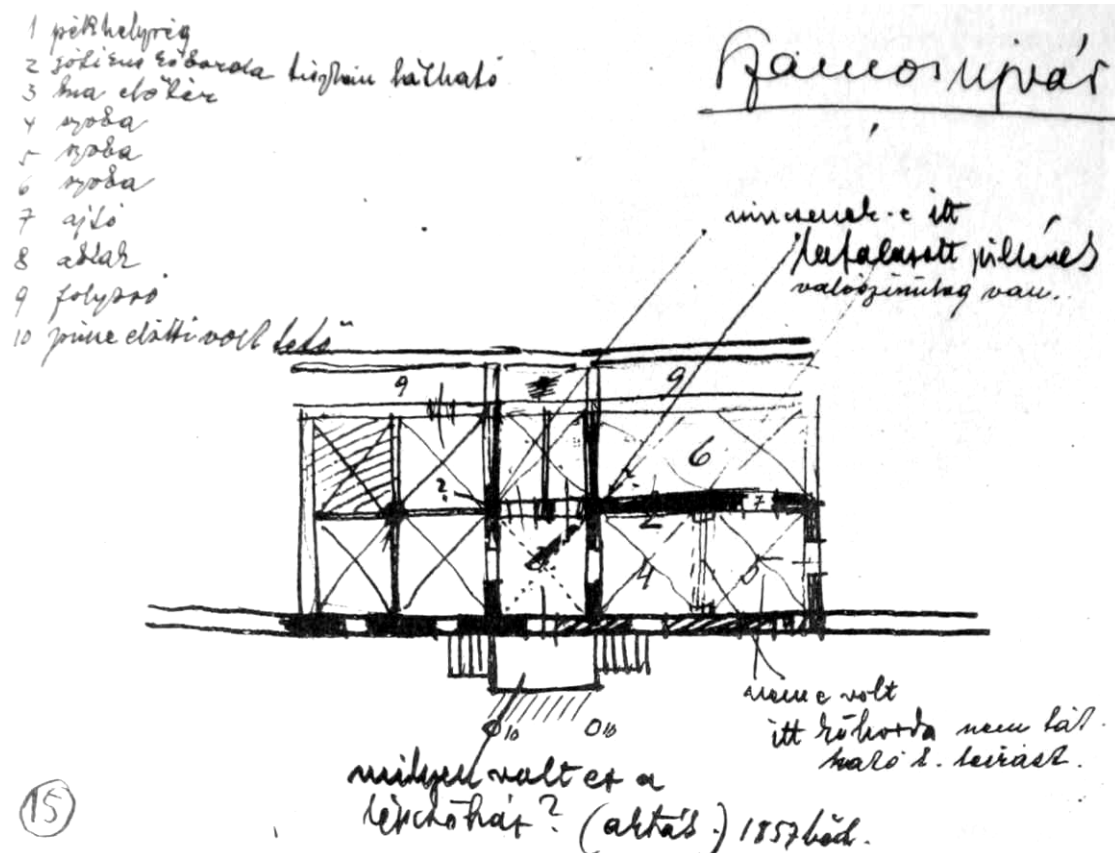 Szamosujvár
1 pékhelység
2 gótikus kőborda tisztán látható
3 ma előtér
4 szoba
5 szoba
6 szoba
7 ajtó
8 ablak
9 folyosó
10 pince előtti volt tető
nincsenek-e itt
befalazott pillérek
valószinüleg van.
9
9
6
?
?
7
2
4
5
10
10
nem e volt
itt kőborda nem lát-
ható l. leirást.
milyen volt ez a
lépcsőház? (akták.) 1857 ből.
15